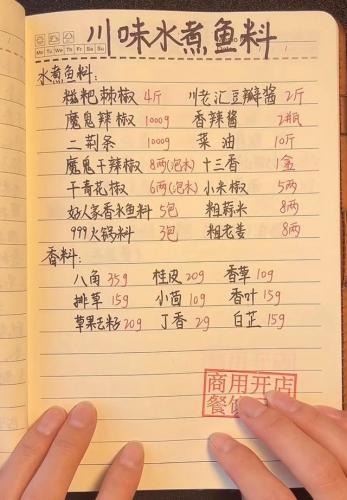 Mo Tu We Th Fr Sa Su
川味水煮鱼料
水煮鱼料:
糍粑辣椒 4斤 川老汇豆瓣酱 2斤
魔鬼辣椒 1000g 香辣酱 2瓶
二荆条 1000g 菜油 10斤
魔鬼干辣椒 8两(泡水) 十三香 1盒
干青花椒 6两(泡水) 小米椒 5两
好人家香水鱼料 5包 粗蒜米 8两
999火锅料 3包 粗老姜 8两
香料:
八角 35g 桂皮 20g 香草 10g
排草 15g 小茴 10g 香叶 15g
草果去籽 20g 丁香 2g 白芷 15g
商用开店
餐饮